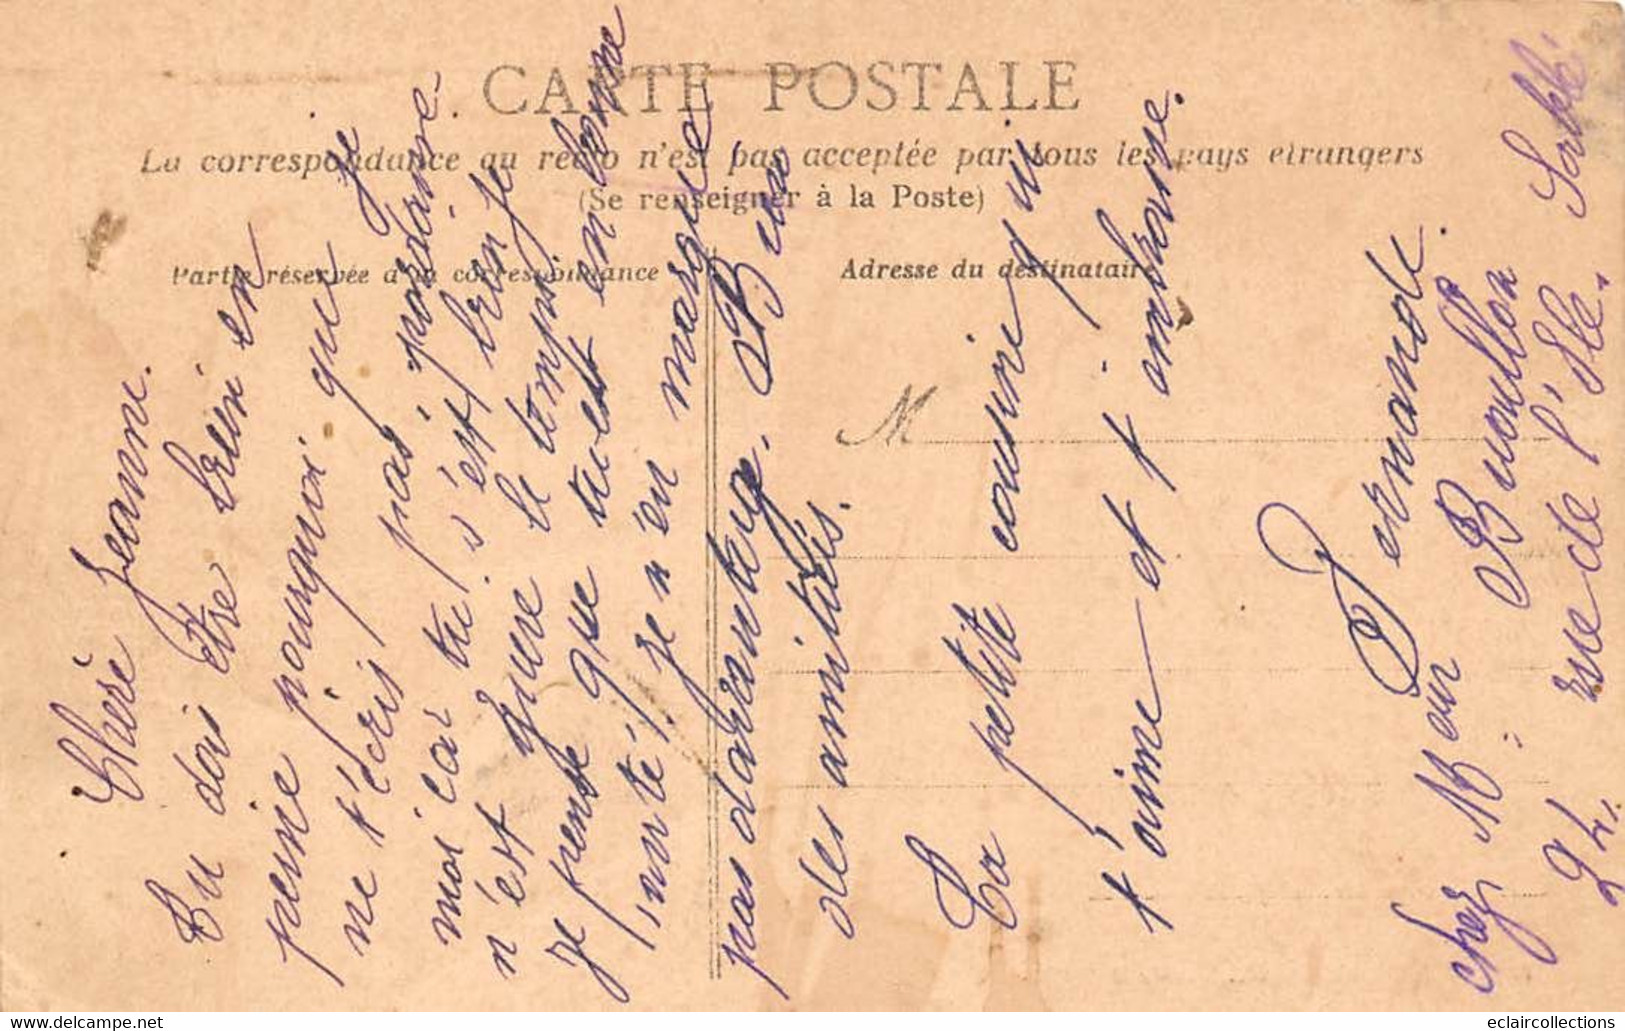 CARTE POSTALE
La correspondance au recto n'est pas acceptée par tous les pays etrangers
(Se renseigner à la Poste)
Partie réservée à la correspondance
Adresse du destinataire
M
Chère Jeanne.
Tu dois être bien en
peine pourquoi que je
ne t'écris pas pardonne
moi car tu s'est bien je
n'est guere le temps je
je pense que tu est en bonne
santé! je n'en marque
pas davantage. Bien
des amitiés.
Ta petite cousine qui
t'aime et t'embrasse.
Fernande.
chez Mon Bouillon
24, rue de l'Isle. Sablé
eclaircollections